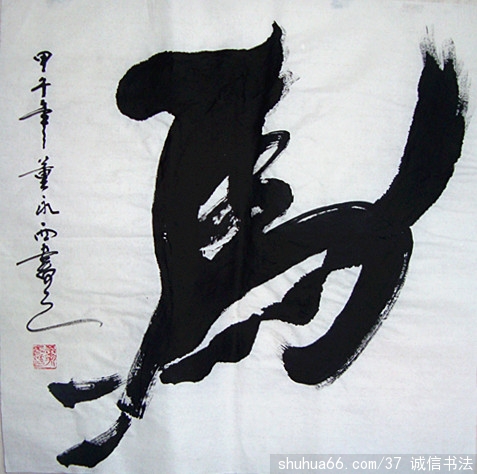 馬
甲午年董永西書之
shuhua66.com/37 诚信书法